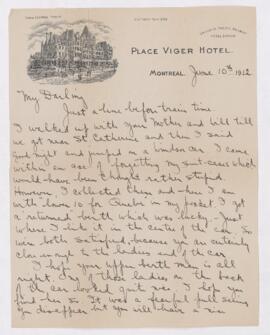 PLACE VIGER HOTEL.
MONTREAL, June 10th 1912
My Darling
Just a line before train time
I walked up with your Mother and Bill till
we got near St Catherine and then I said
good night and jumped on a Windsor car. I came
within an ace of forgetting my suit-cases which
would have been rather stupid.
However I collected them and when I
with lower 10 for Quebec in my pocket I got
a returned berth which was lucky - just
where I like it in the centre of the car. So
were both satisfied, because you are
close enough to the ladies end of the car
I hope your upper berth man is all
right. One of those ladies on the back
of the car looked quite nice. I hope you
find her so. It was a fearful pull seeing
you disappear but you will have a nice